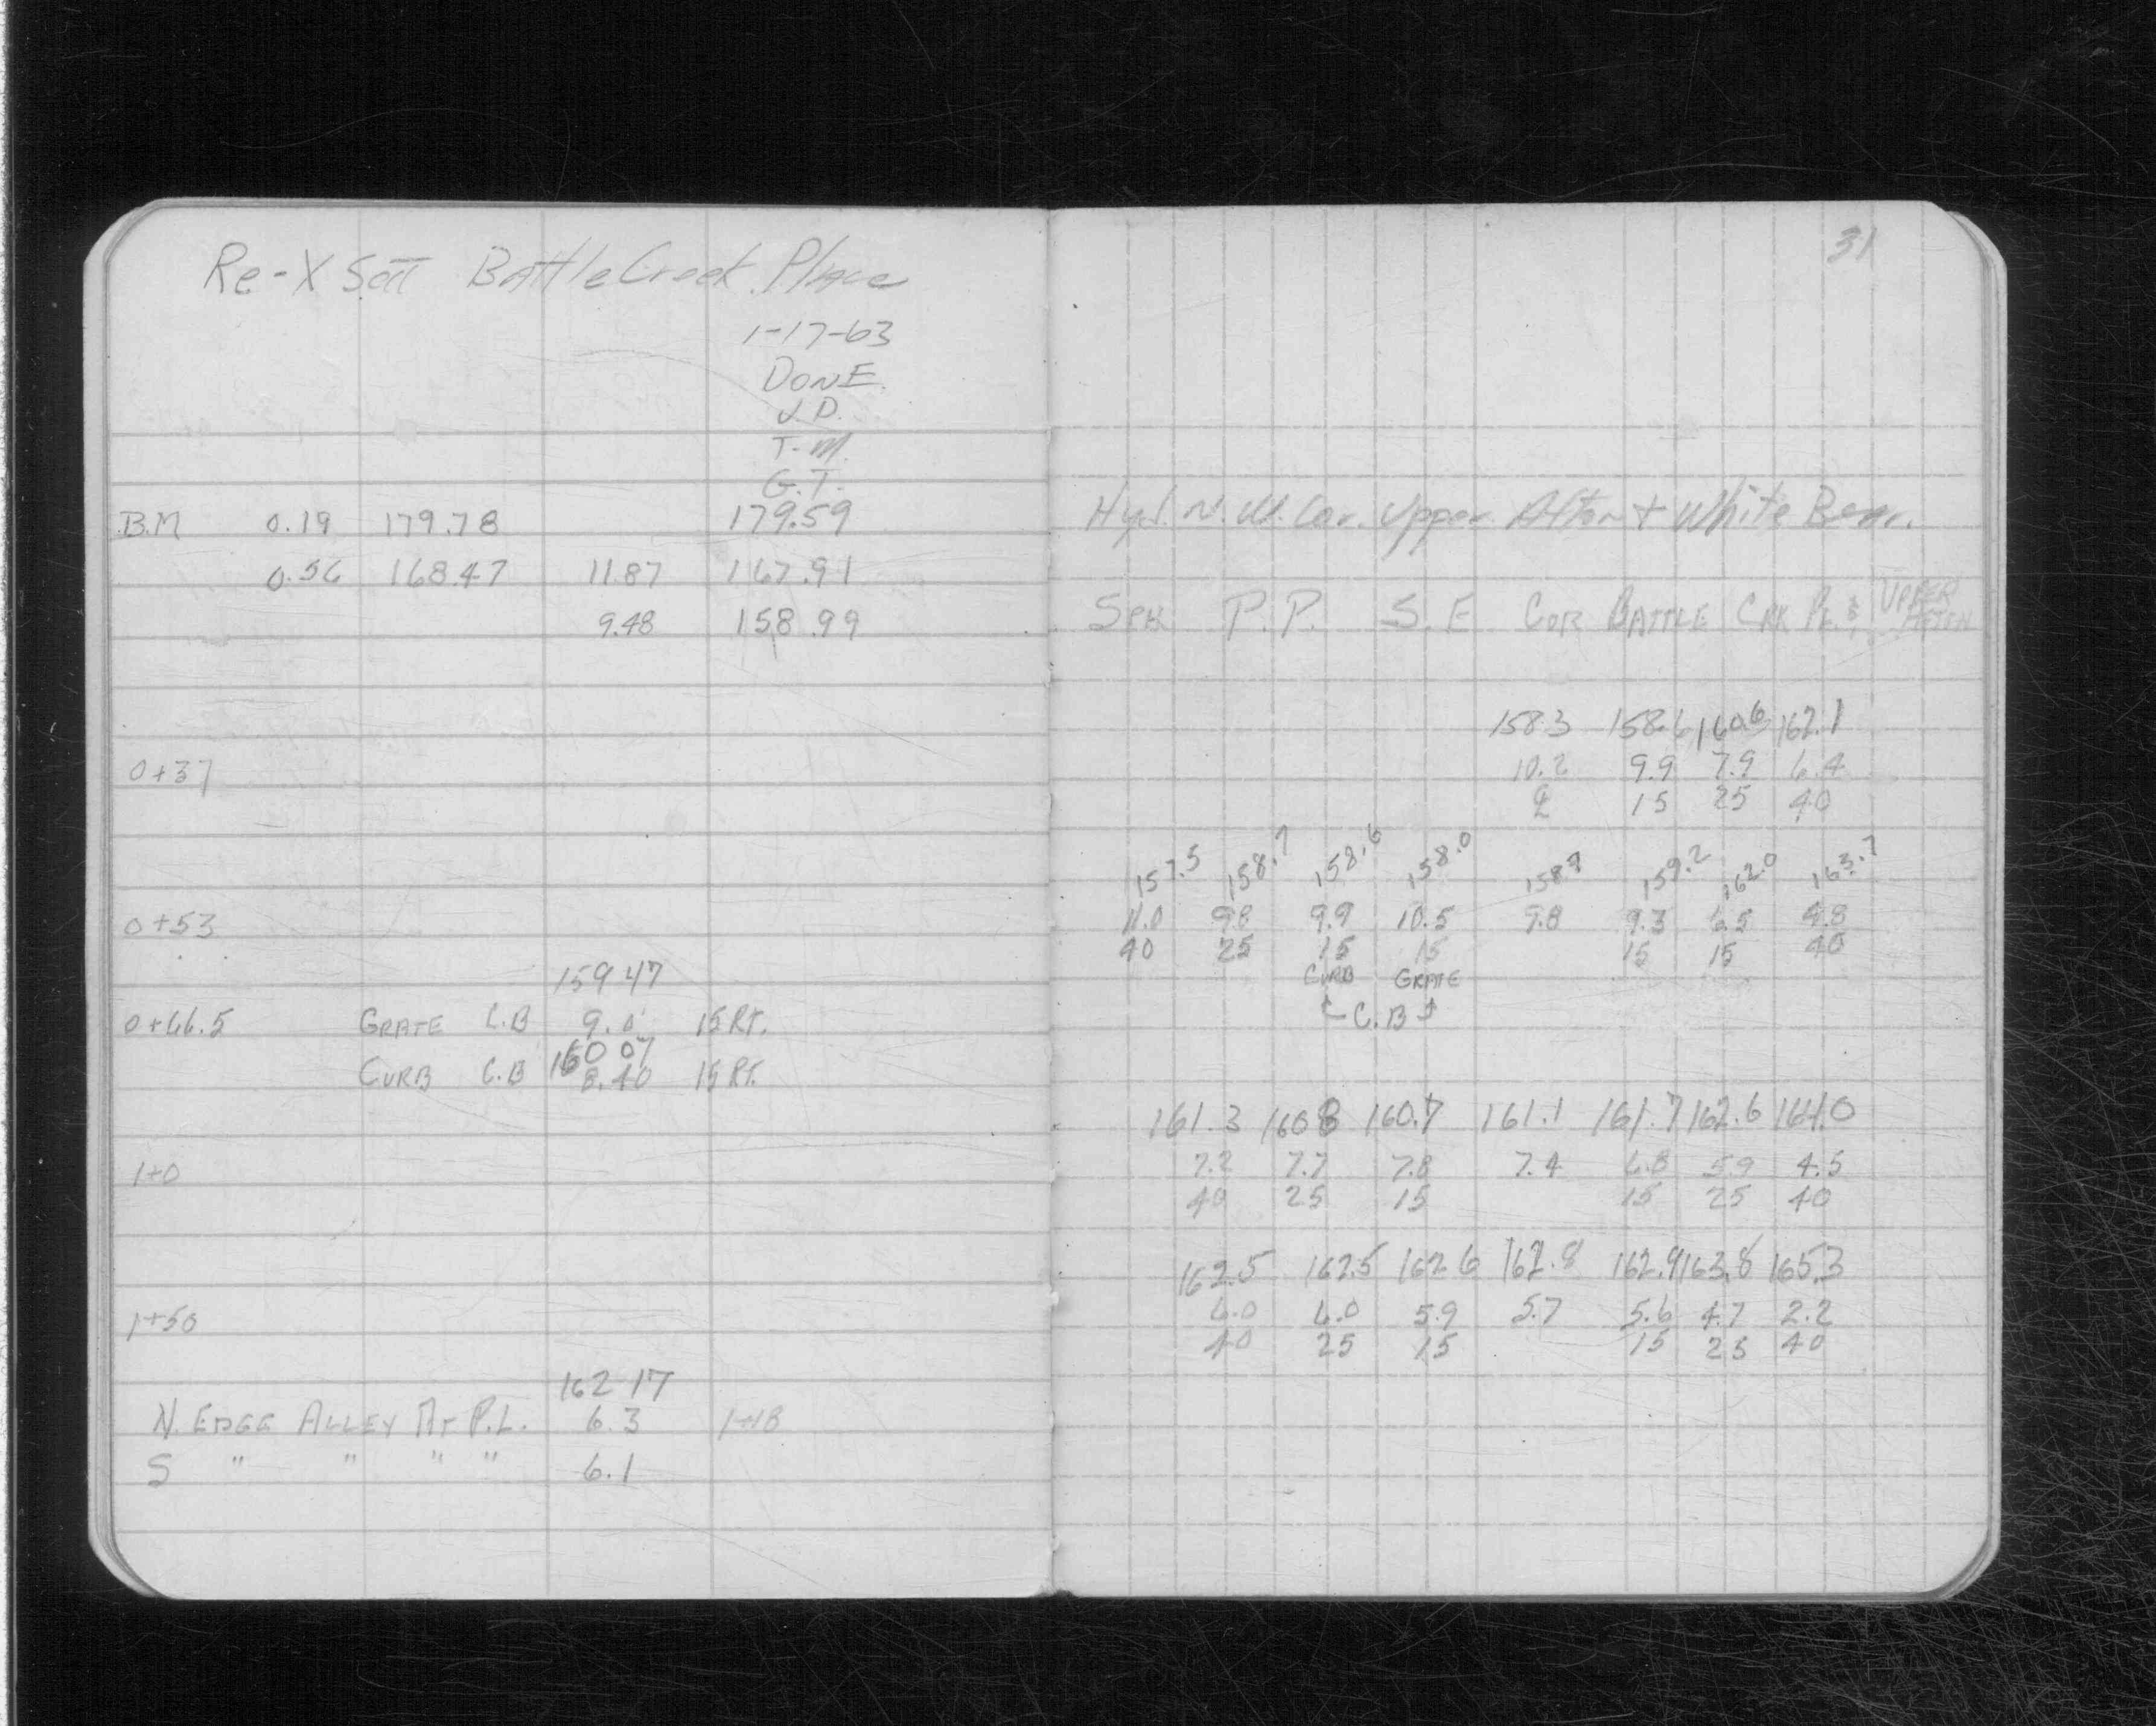 Re-X Sett Battle Creek Place
1-17-63
DONE.
J.D.
T.M.
G.T.
B.M 0.19 179.78 179.59
0.56 168.47 11.87 167.91
9.48 158.99
0+37
0+53
159 47
0+66.5 GRATE C.B 9.0 15 RT.
160 07
CURB C.B 8.40 15 RT.
1+0
1+50
162 17
N. EDGE ALLEY AT P.L. 6.3 1+18
S " " " " 6.1
31
Hyd. N.W. Cor. Upper Afton + White Bear.
SPK P.P. S.E COR BATTLE CRK PL. & UPPER AFTON
158.3 158.6 160.6 162.1
10.2 9.9 7.9 6.4
℄ 15 25 40
157.5 158.7 158.6 158.0 158.7 159.2 162.0 163.7
11.0 9.8 9.9 10.5 9.8 9.3 6.5 4.8
40 25 15 15 15 15 40
CURB GRATE
C.B
161.3 160 8 160.7 161.1 161.7 162.6 164.0
7.2 7.7 7.8 7.4 6.8 5.9 4.5
40 25 15 15 25 40
162.5 162.5 162 6 162.8 162.9 163.8 165.3
6.0 6.0 5.9 5.7 5.6 4.7 2.2
40 25 15 15 25 40